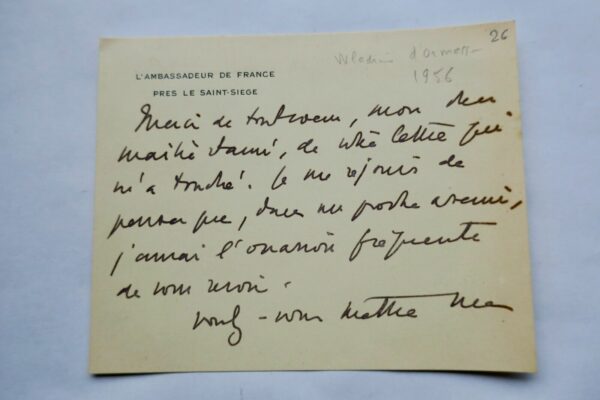 26
Wladimir d'Ormesson
1956
L'AMBASSADEUR DE FRANCE
PRES LE SAINT-SIEGE
Merci de tout coeur, mon cher
maître et ami, de votre lettre qui
m'a touché. Je me réjouis de
penser que, dans un proche avenir,
j'aurai l'occasion fréquente
de vous revoir.
Voulez-vous mettre mes